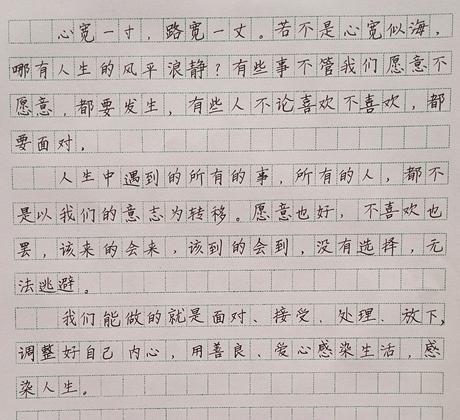 心宽一寸，路宽一丈。若不是心宽似海，
哪有人生的风平浪静？有些事不管我们愿意不
愿意，都要发生，有些人不论喜欢不喜欢，都
要面对，
人生中遇到的所有的事，所有的人，都不
是以我们的意志为转移。愿意也好，不喜欢也
罢，该来的会来，该到的会到，没有选择，无
法逃避。
我们能做的就是面对、接受、处理、放下，
调整好自己内心，用善良、爱心感染生活，感
染人生。